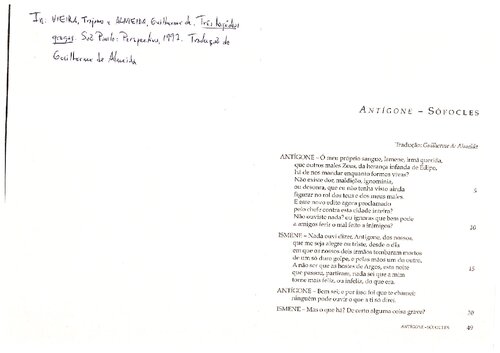 In: VIEIRA, Trajano e ALMEIDA, Guilherme de. Três tragédias
gregas. São Paulo: Perspectiva, 1997. Tradução de
Guilherme de Almeida
ANTÍGONE – SÓFOCLES
Tradução: Guilherme de Almeida
ANTÍGONE – Ó meu próprio sangue, Ismene, irmã querida,
que outros males Zeus, da herança infanda de Édipo,
há de nos mandar enquanto formos vivas?
Não existe dor, maldição, ignomínia,
ou desonra, que eu não tenha visto ainda 5
figurar no rol dos teus e dos meus males.
E esse novo edito agora proclamado
pelo chefe contra esta cidade inteira?
Não ouviste nada? ou ignoras que bem pode
a amigos ferir o mal feito a inimigos? 10
ISMENE – Nada ouvi dizer, Antígone, dos nossos,
que me seja alegre ou triste, desde o dia
em que os nossos dois irmãos tombaram mortos
de um só duro golpe, e pelas mãos um do outro.
A não ser que as hostes de Argos, esta noite 15
que passou, partiram, nada sei que a mim
torne mais feliz, ou infeliz, do que era.
ANTÍGONE – Bem sei; e por isso foi que te chamei:
ninguém pode ouvir o que a ti só direi.
ISMENE – Mas o que há? De certo alguma coisa grave? 20
ANTÍGONE – SÓFOCLES 49